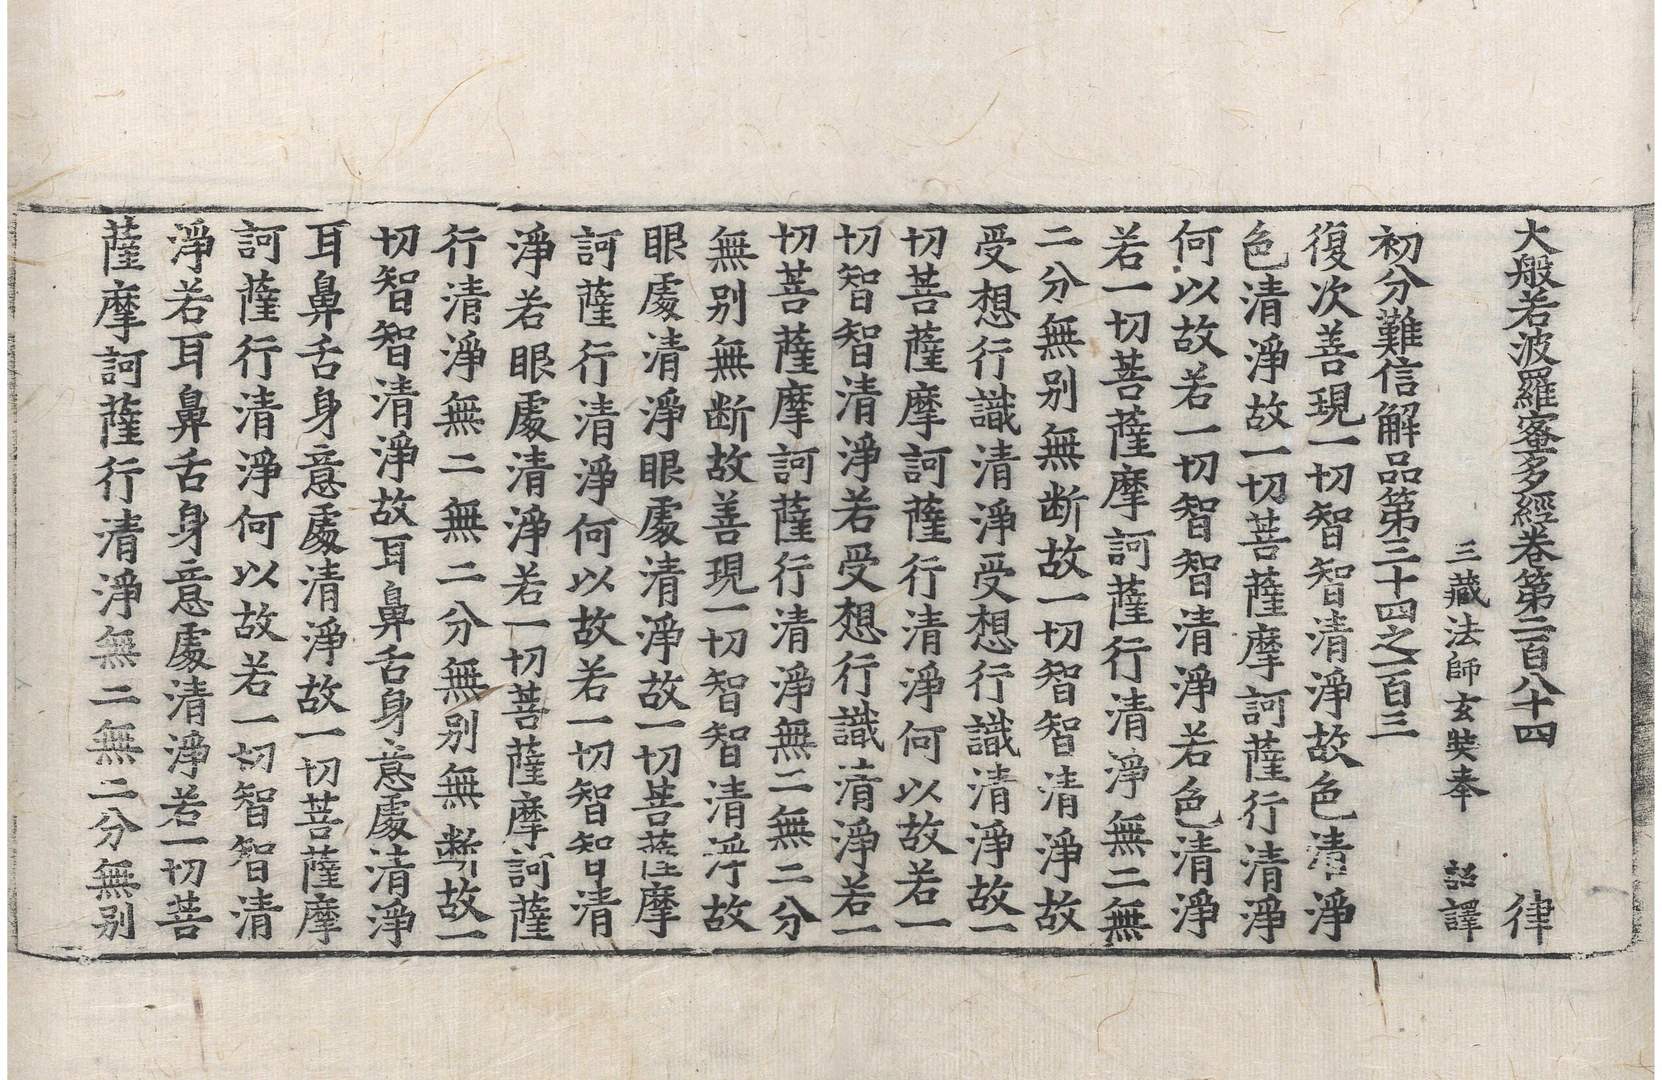 大般若波羅蜜多經卷第二百八十四 律
三藏法師玄奘奉 詔譯
初分難信解品第三十四之一百三
復次善現一切智智清淨故色清淨
色清淨故一切菩薩摩訶薩行清淨
何以故若一切智智清淨若色清淨
若一切菩薩摩訶薩行清淨無二無
二分無別無断故一切智智清淨故
受想行識清淨受想行識清淨故一
切菩薩摩訶薩行清淨何以故若一
切智智清淨若受想行識清淨若一
切菩薩摩訶薩行清淨無二無二分
無別無断故善現一切智智清淨故
眼處清淨眼處清淨故一切菩薩摩
訶薩行清淨何以故若一切智智清
淨若眼處清淨若一切菩薩摩訶薩
行清淨無二無二分無別無斷故一
切智智清淨故耳鼻舌身意處清淨
耳鼻舌身意處清淨故一切菩薩摩
訶薩行清淨何以故若一切智智清
淨若耳鼻舌身意處清淨若一切菩
薩摩訶薩行清淨無二無二分無別